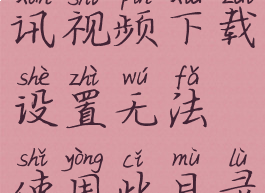 xùn shì pín xià zǎi
讯视频下载
shè zhì wú fǎ
设置无法
shǐ yòng cǐ mù lù
使用此目录